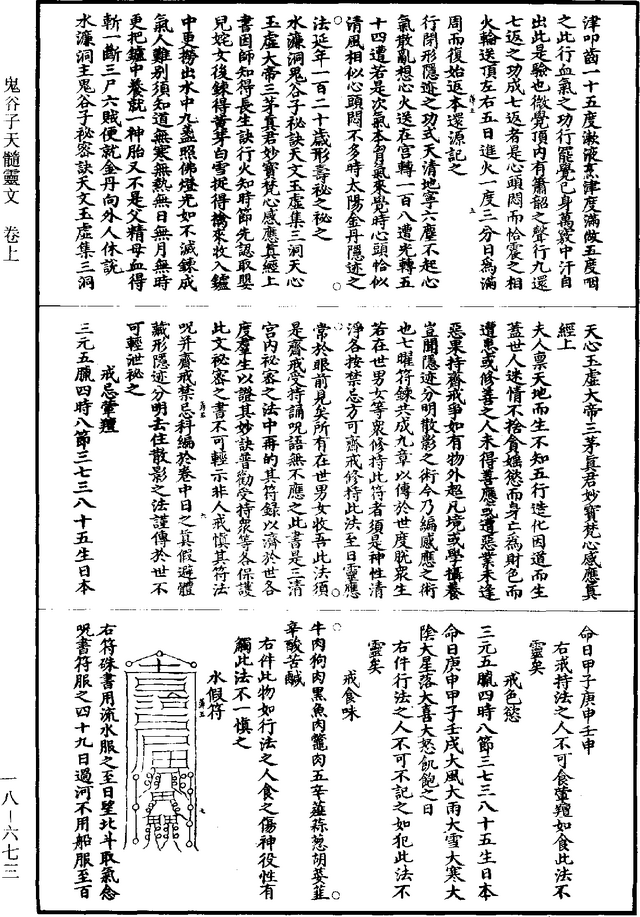 津叩齒一十五度漱液烹津度滿做五度咽
之此行血氣之功行罷覺己身萬竅中汗自
出此是驗也微覺頂內有簫韶之聲行九還
七返之功成七返者是心頭悶而恰震之相
火輪送頂左右五日進火一度三分日為滿
周而復始返本還源記之
行閉形隱迹之功式天清地寧六塵不起心
氣散亂想心火送在宮轉一百八遭先轉五
十四遭若是次氣本胃氣來覺時心頭恰似
清風相似心頭悶不多時太陽金丹隱迹之
法延年一百二十歲形壽祕之祕之
水濂洞鬼谷子祕訣天文玉虛集三洞天心
玉虛大帝三茅真君妙寶梵心感應真經上
書因師知得長生訣行火知時節先認取嬰
兒姹女後鍊得黃芽白雪捉得擒來收入鑪
中更撈出水中九盞照佛燈光如不滅鍊成
氣人難別須知道無寒無熱無日無月無時
更把鑪中養就一神胎又不是父精母血得
斬一斷三尸六賊便就金丹向外人休説
水濂洞主鬼谷子祕密訣天文玉虛集三洞
天心玉虛大帝三茅真君妙寶梵心感應真
經上
夫人稟天地而生不知五行造化因道而生
蓋世人迷情不捨貪媱慾而身亡為財色而
遭患或修善之人未得善應或遭惡業未逢
惡果持齋戒爭如有物外超凡境或學攝養
豈聞隱迹分明散影之術今乃編感應之術
也七曜符鍊共成九章以傳於世度脱眾生
若在世男女等眾修持此符者須是神性清
淨各按禁忌方可齋戒修持此法至日靈應
常於眼前見矣所有在世男女收吾此法須
是齋戒受持誦呪語無不應之此書是三清
宮內祕密之法中再的其符録以濟於世各
度羣生以證其妙訣普勸受持眾等各保護
此文祕密之書不可輕示非人戒慎其符法
呪并齋戒禁忌科編於卷中日之真假避體
藏形隱迹分明去住散影之法謹傳於世不
可輕泄祕之
戒忌葷羶
三元五臘四時八節三七三八十五生日本
命日甲子庚申壬申
右戒持法之人不可食葷羶如食此法不
靈矣
戒色慾
三元五臘四時八節三七三八十五生日本
命日庚申甲子壬戌大風大雨大雪大寒大
陰大星落大喜大怒飢飽之日
右件行法之人不可不記之如犯此法不
靈矣
戒食味
牛肉狗肉黑魚肉鼈肉五辛薤蒜葱胡荽韮
辛酸苦鹹
右件此物如行法之人食之傷神役性有
觸此法不一慎之
水假符
右符硃書用流水服之至日望北斗取氣念
呪書符服之四十九日過河不用船服至百
鬼谷子天髓靈文 卷上
一八－六七三